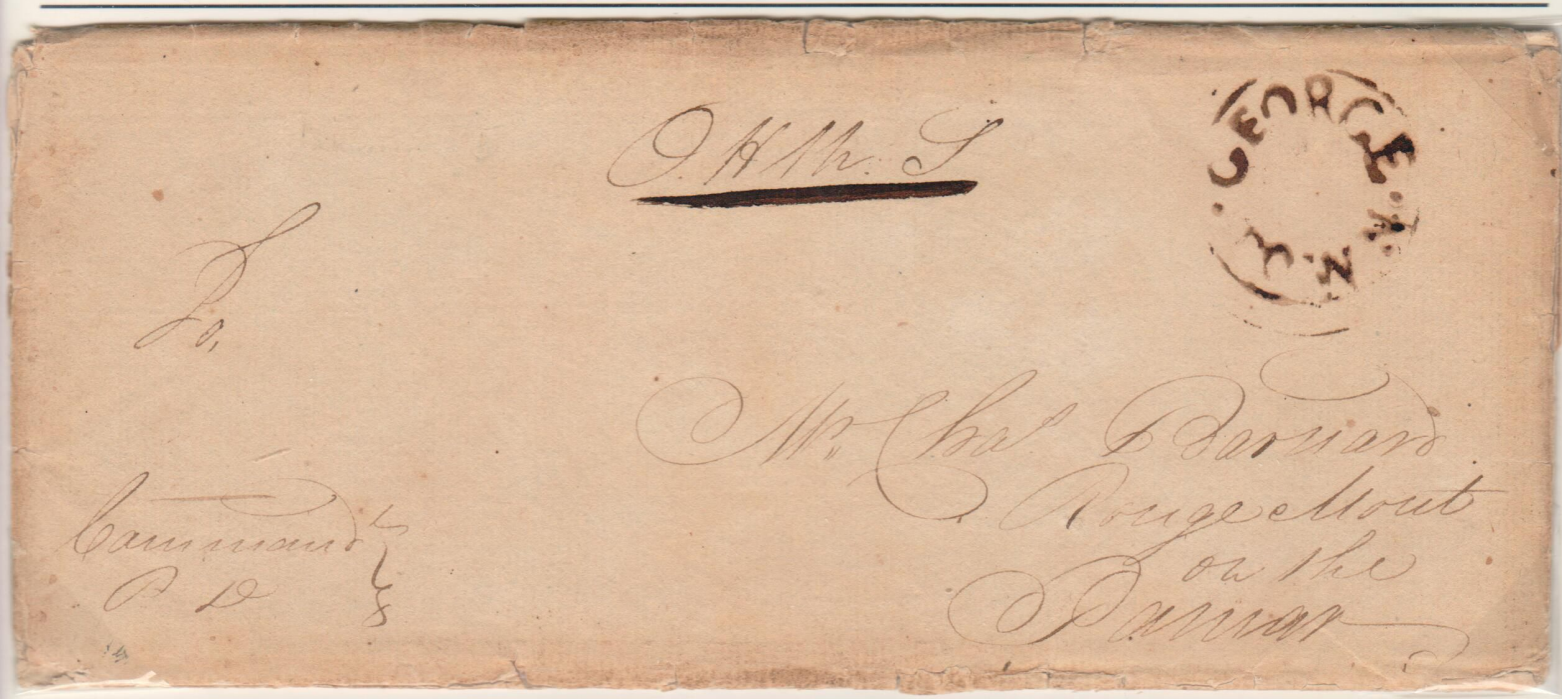 O. H. M. S
· GEORGE · K · N · Y
To,
Mr. Chas Barnard
Rouge Mont
on the
Command
P D